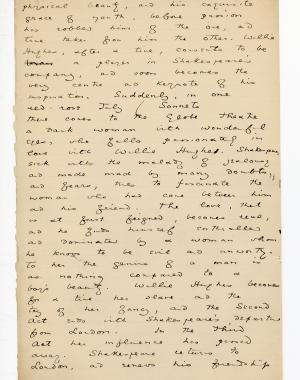 physical beauty, and his exquisite
grace of youth, before passion
has robbed him of the one, and
time taken from him the other. Willie
Hughes, after a time, consents to be
a player in Shakespeare's
company, and soon becomes the
very centre and keynote of his
inspiration. Suddenly, in one
red-rose July
there comes to the Globe Theatre
a dark woman with wonderful
eyes, who falls passionately in
love with Willie Hughes. Shakespeare,
sick with the malady of jealousy,
and made mad by many doubts,
and fears, tries to fascinate the
woman who has come between him
and his friend. The love, that
is at first feigned, becomes real,
and he finds himself enthralled
and dominated by a woman whom
he knows to be evil and unworthy.
To her the genius of a man is
as nothing compared to a
boy's beauty. Willie Hughes becomes
for a time her slave and the
toy of her fancy, and the Second
Act ends with Shakespeare's departure
from London. In the third
Act her influence has passed
away. Shakespeare returns to
London, and renews his friendship